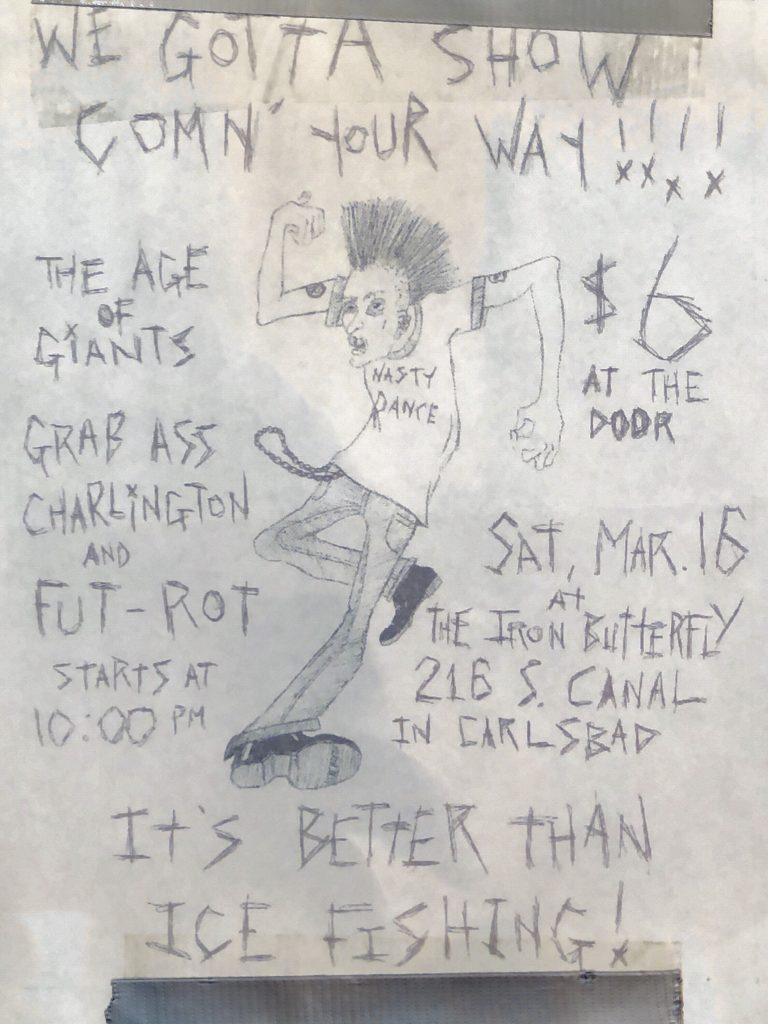 WE GOTTA SHOW
COMN' YOUR WAY!!!!
THE AGE
OF
GIANTS
GRAB ASS
CHARLINGTON
AND
FUT-ROT
STARTS AT
10:00 PM
NASTY
DANCE
$6
AT THE
DOOR
SAT, MAR. 16
AT
THE IRON BUTTERFLY
216 S. CANAL
IN CARLSBAD
IT'S BETTER THAN
ICE FISHING!